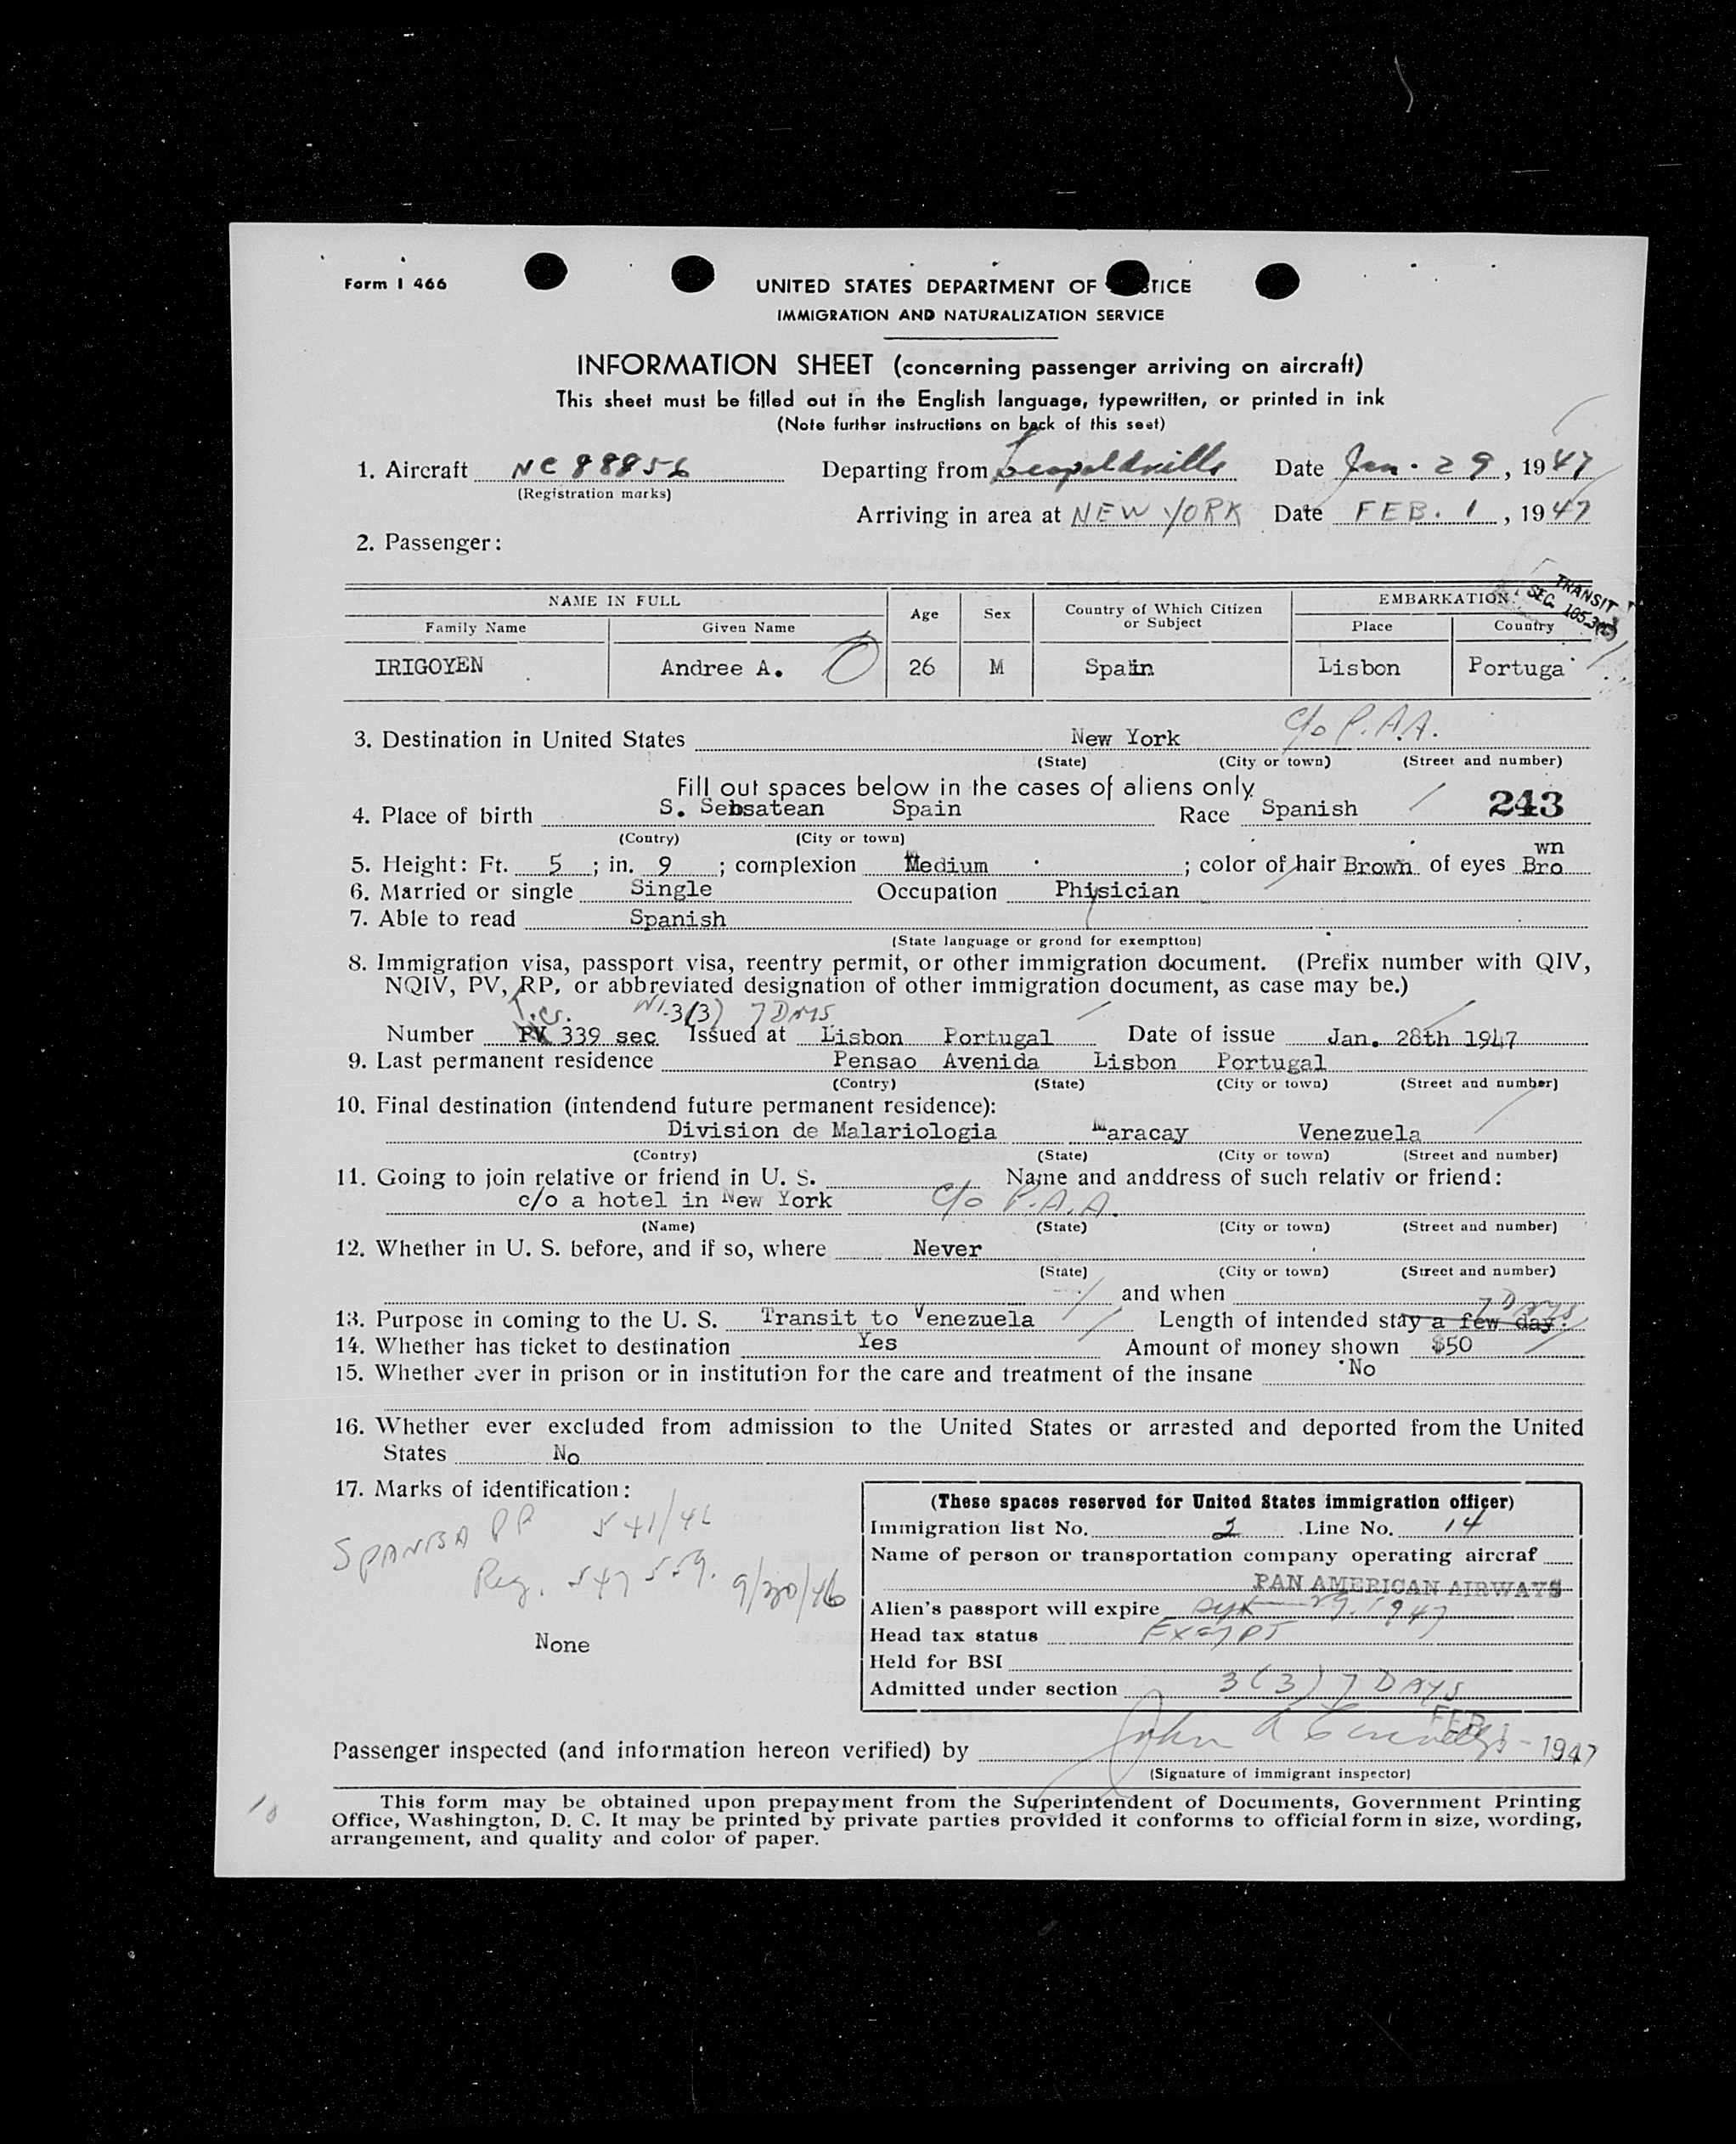 Form I 466
UNITED STATES DEPARTMENT OF STICE
IMMIGRATION AND NATURALIZATION SERVICE
INFORMATION SHEET (concerning passenger arriving on aircraft)
This sheet must be filled out in the English language, typewritten, or printed in ink
(Note further instructions on back of this seet)
1. Aircraft NC 88856 Departing from Leopoldville Date Jan. 29, 1947
(Registration marks)
Arriving in area at NEW YORK Date FEB. 1, 1947
2. Passenger:
TRANSIT
SEC. 105.3
NAME IN FULL Age Sex Country of Which Citizen or Subject EMBARKATION
Family Name Given Name Place Country
IRIGOYEN Andree A. 26 M Spain Lisbon Portuga
3. Destination in United States New York c/o P.A.A.
(State) (City or town) (Street and number)
Fill out spaces below in the cases of aliens only
4. Place of birth S. Sebsatean Spain Race Spanish 243
(Contry) (City or town)
5. Height: Ft. 5 ; in. 9 ; complexion Medium ; color of hair Brown of eyes Brown
6. Married or single Single Occupation Phisician
7. Able to read Spanish
(State language or grond for exemption)
8. Immigration visa, passport visa, reentry permit, or other immigration document. (Prefix number with QIV,
NQIV, PV, RP, or abbreviated designation of other immigration document, as case may be.)
3(3) 7 DAYS
Number PV 339 sec Issued at Lisbon Portugal Date of issue Jan. 28th 1947
9. Last permanent residence Pensao Avenida Lisbon Portugal
(Contry) (State) (City or town) (Street and number)
10. Final destination (intendend future permanent residence):
Division de Malariologia Maracay Venezuela
(Contry) (State) (City or town) (Street and number)
11. Going to join relative or friend in U. S. Name and anddress of such relativ or friend:
c/o a hotel in New York c/o P.A.A.
(Name) (State) (City or town) (Street and number)
12. Whether in U. S. before, and if so, where Never
(State) (City or town) (Street and number)
and when
7 DAYS
13. Purpose in coming to the U. S. Transit to Venezuela Length of intended stay a few day.
14. Whether has ticket to destination Yes Amount of money shown $50
15. Whether ever in prison or in institution for the care and treatment of the insane No
16. Whether ever excluded from admission to the United States or arrested and deported from the United
States No
17. Marks of identification:
SPANISH PP 541/46
Reg. 547559. 9/30/46
None
(These spaces reserved for United States immigration officer)
Immigration list No. 2 Line No. 14
Name of person or transportation company operating aircraf
PAN AMERICAN AIRWAYS
Alien's passport will expire 29, 1947
Head tax status EXEMPT
Held for BSI
Admitted under section 3(3) 7 DAYS
FEB 1 - 1947
Passenger inspected (and information hereon verified) by John A
(Signature of immigrant inspector)
This form may be obtained upon prepayment from the Superintendent of Documents, Government Printing
Office, Washington, D. C. It may be printed by private parties provided it conforms to official form in size, wording,
arrangement, and quality and color of paper.